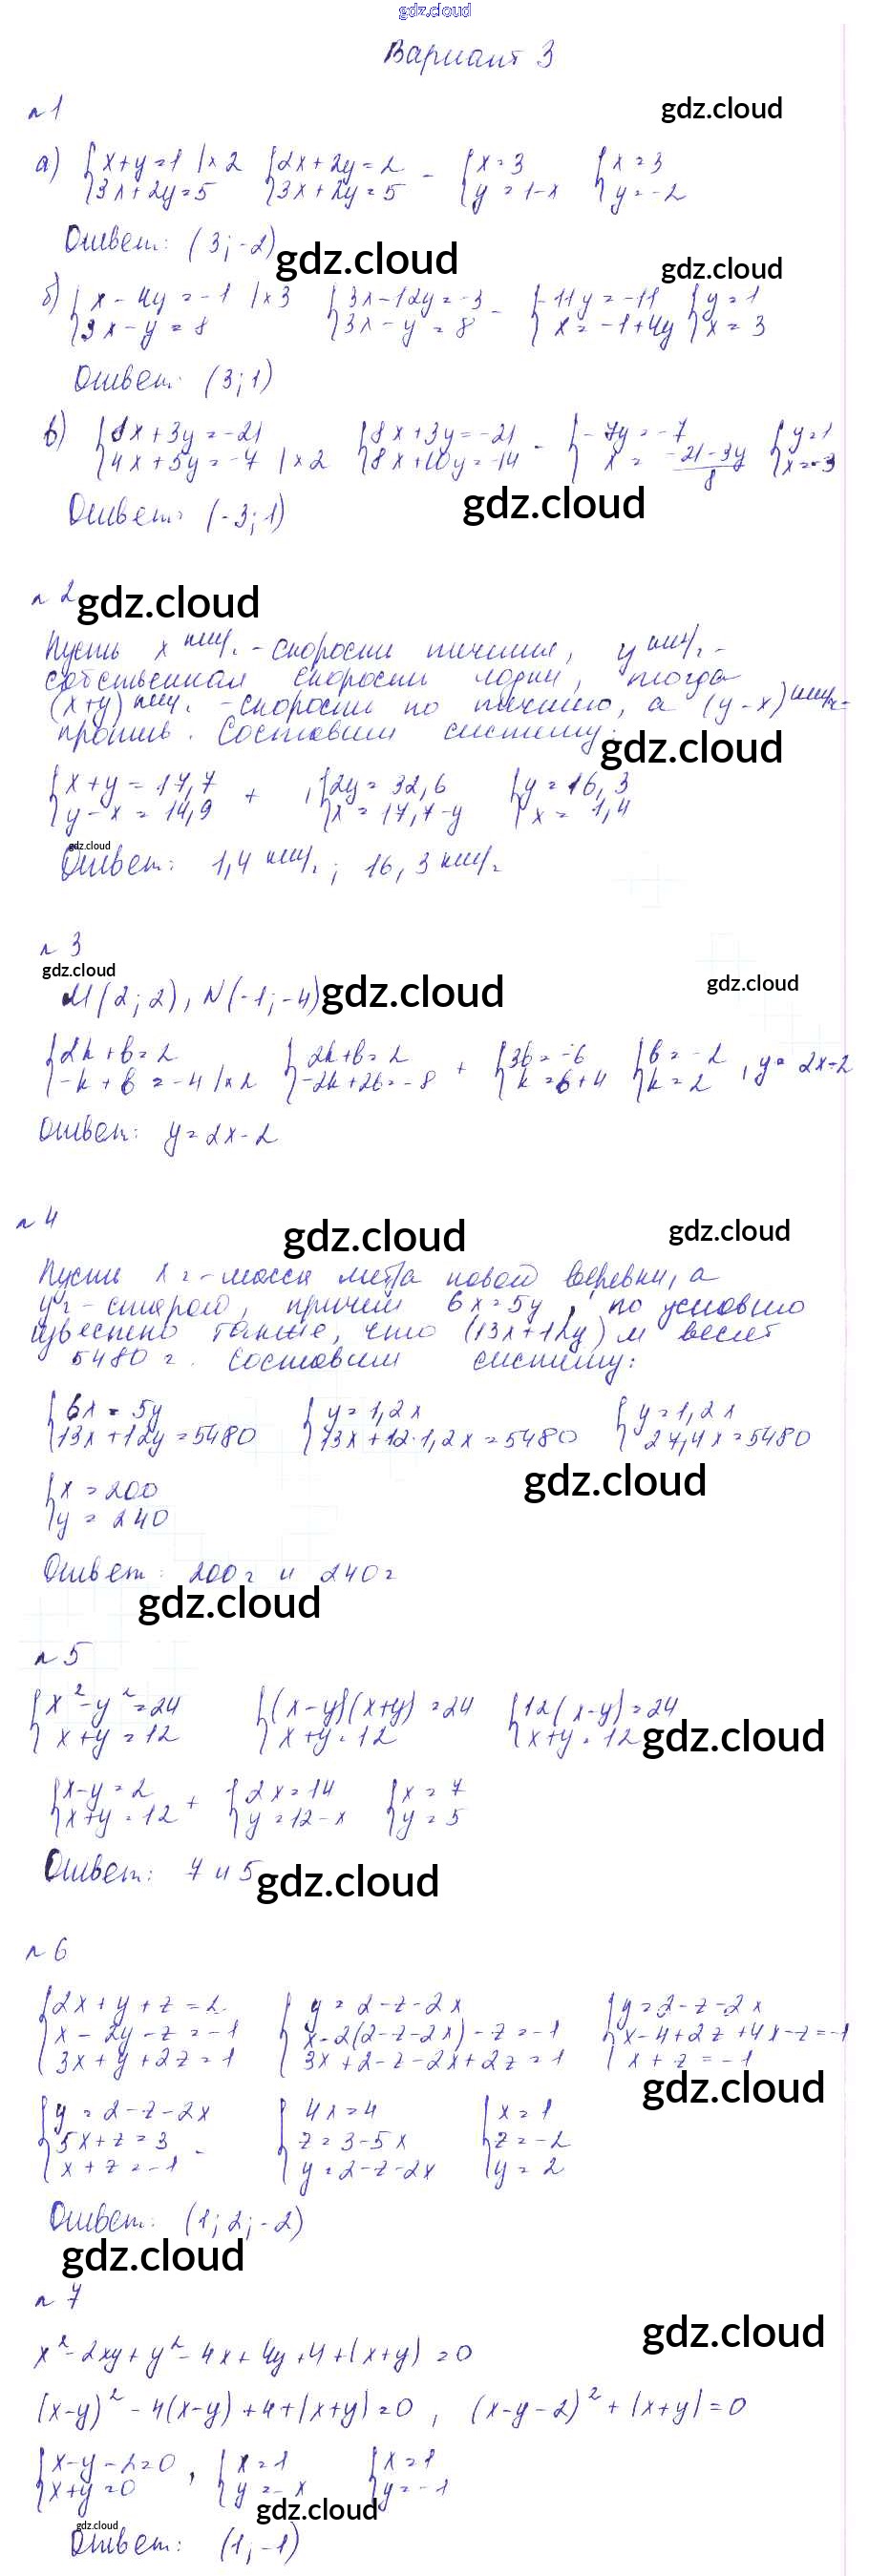 gdz.cloud
Вариант 3
n 1
gdz.cloud
а) {x+y=1 |×2 {2x+2y=2 - {x=3 {x=3
{3x+2y=5 {3x+2y=5 {y=1-x {y=-2
Ответ: (3;-2)
gdz.cloud gdz.cloud
б) {x-4y=-1 |×3 {3x-12y=-3 - {-11y=-11 {y=1
{3x-y=8 {3x-y=8 {x=-1+4y {x=3
Ответ: (3;1)
в) {8x+3y=-21 {8x+3y=-21 - {-7y=-7 {y=1
{4x+5y=-7 |×2 {8x+10y=-14 {x=(-21-3y)/8 {x=-3
Ответ: (-3;1)
gdz.cloud
n 2
gdz.cloud
Пусть x км/ч - скорость течения, y км/ч -
собственная скорость лодки, тогда
(x+y) км/ч - скорость по течению, а (y-x) км/ч -
против. Составим систему:
gdz.cloud
{x+y=17,7 + , {2y=32,6 {y=16,3
{y-x=14,9 {x=17,7-y {x=1,4
gdz.cloud
Ответ: 1,4 км/ч; 16,3 км/ч
n 3
gdz.cloud
M(2;2), N(-1;-4)
gdz.cloud gdz.cloud
{2k+b=2 {2k+b=2 + {3b=-6 {b=-2 , y=2x-2
{-k+b=-4 |×2 {-2k+2b=-8 {k=b+4 {k=2
Ответ: y=2x-2
n 4
gdz.cloud gdz.cloud
Пусть x г - масса метра новой веревки, а
y г - старой, причем 6x=5y, по условию
известно также, что (13x+12y) м весит
5480 г. Составим систему:
{6x=5y {y=1,2x {y=1,2x
{13x+12y=5480 {13x+12·1,2x=5480 {27,4x=5480
gdz.cloud
{x=200
{y=240
Ответ: 200 г и 240 г
gdz.cloud
n 5
{x²-y²=24 {(x-y)(x+y)=24 {12(x-y)=24
{x+y=12 {x+y=12 {x+y=12
gdz.cloud
{x-y=2 + {2x=14 {x=7
{x+y=12 {y=12-x {y=5
Ответ: 7 и 5
gdz.cloud
n 6
{2x+y+z=2 {y=2-z-2x {y=2-z-2x
{x-2y-z=-1 {x-2(2-z-2x)-z=-1 {x-4+2z+4x-z=-1
{3x+y+2z=1 {3x+2-z-2x+2z=1 {x+z=-1
gdz.cloud
{y=2-z-2x {4x=4 {x=1
{5x+z=3 - {z=3-5x {z=-2
{x+z=-1 {y=2-z-2x {y=2
Ответ: (1;2;-2)
gdz.cloud
n 7
gdz.cloud
x²-2xy+y²-4x+4y+4+|x+y|=0
(x-y)²-4(x-y)+4+|x+y|=0, (x-y-2)²+|x+y|=0
{x-y-2=0 , {x=1 {x=1
{x+y=0 {y=-x {y=-1
gdz.cloud
gdz.cloud
Ответ: (1;-1)